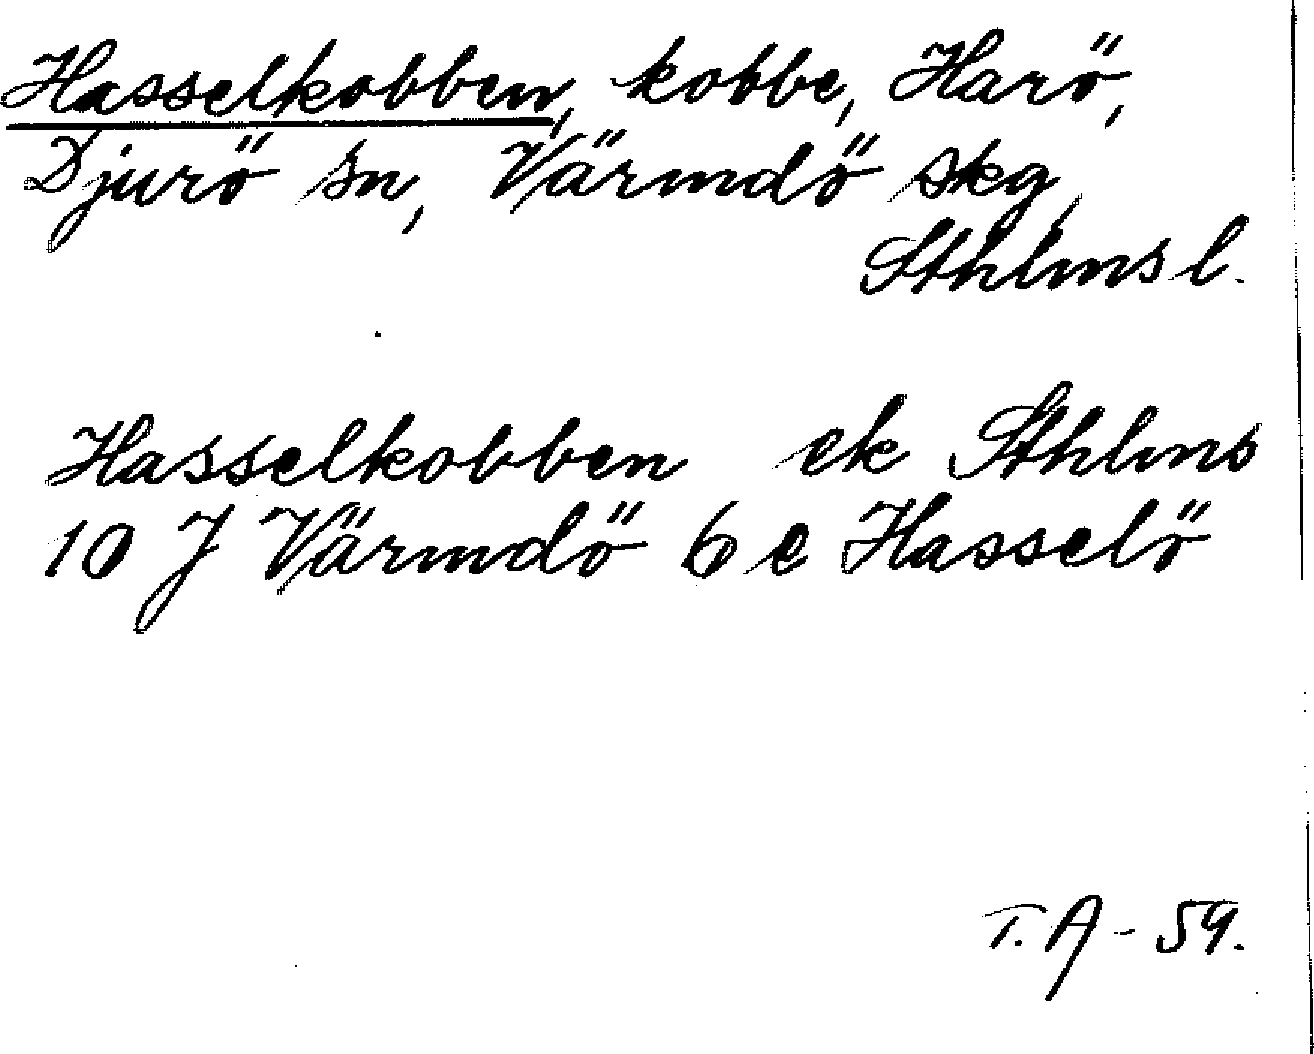 Hasselkobben, kobbe, Harö,
Djurö sn, Värmdö skg,
Sthlms l.
Hasselkobben ek Sthlms
10 J Värmdö 6 e Hasselö
T. A - 59.